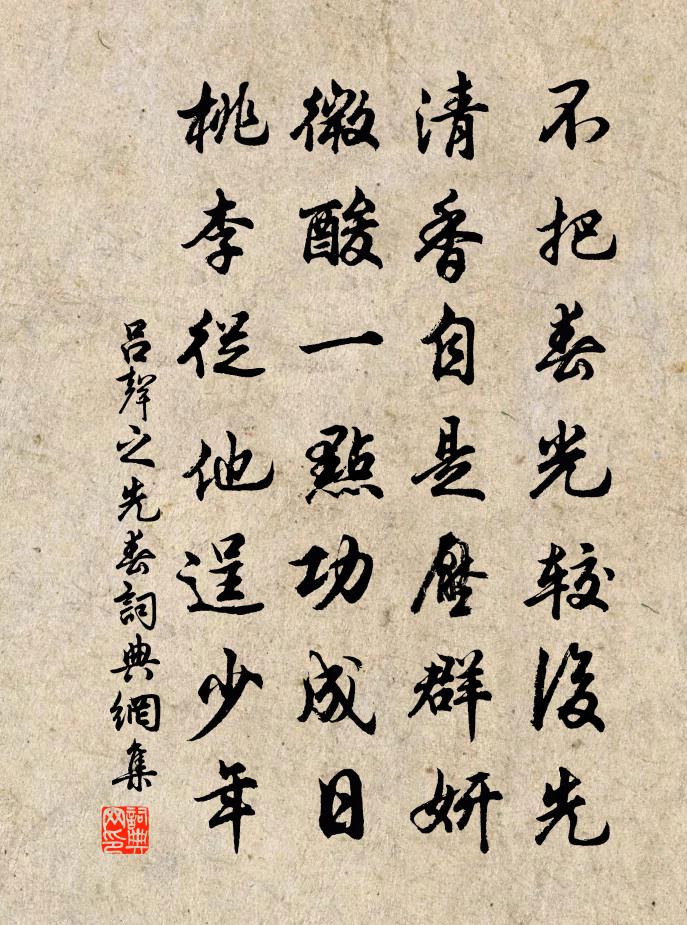 不把春光較後先
清香自是壓群妍
微酸一點功成日
桃李從他逞少年
呂聲之先春詞典網集
詞典网印